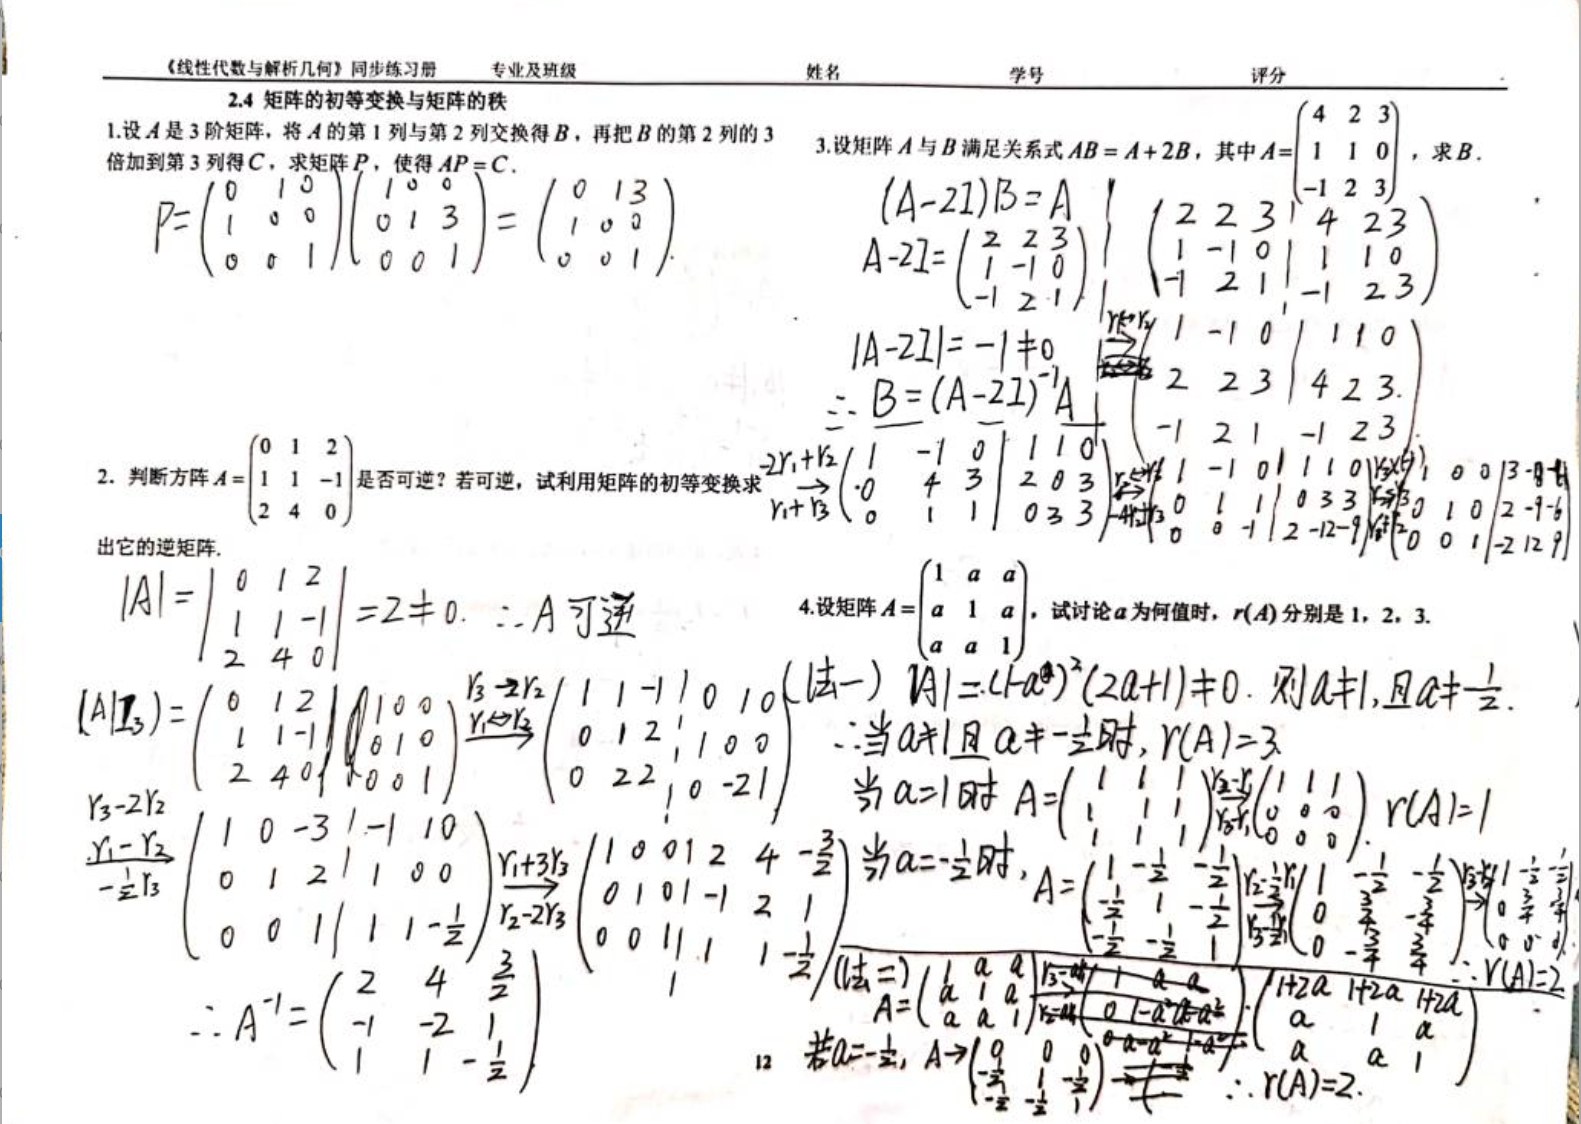 《线性代数与解析几何》同步练习册 专业及班级 姓名 学号 评分
2.4 矩阵的初等变换与矩阵的秩
1.设 A 是 3 阶矩阵，将 A 的第 1 列与第 2 列交换得 B，再把 B 的第 2 列的 3
倍加到第 3 列得 C，求矩阵 P，使得 AP = C.
P= (0 1 0; 1 0 0; 0 0 1) (1 0 0; 0 1 3; 0 0 1) = (0 1 3; 1 0 0; 0 0 1).
2. 判断方阵 A = (0 1 2; 1 1 −1; 2 4 0) 是否可逆？若可逆，试利用矩阵的初等变换求
出它的逆矩阵.
|A| = |0 1 2; 1 1 -1; 2 4 0| = 2≠0. ∴A 可逆
(A|I₃) = (0 1 2 | 1 0 0; 1 1 -1 | 0 1 0; 2 4 0 | 0 0 1) r₃-2r₂ r₁↔r₂ → (1 1 -1 | 0 1 0; 0 1 2 | 1 0 0; 0 2 2 | 0 -2 1)
r₃-2r₂ r₁-r₂ -½r₃ → (1 0 -3 | -1 1 0; 0 1 2 | 1 0 0; 0 0 1 | 1 1 -½) r₁+3r₃ r₂-2r₃ → (1 0 0 | 2 4 -3/2; 0 1 0 | -1 2 1; 0 0 1 | 1 1 -½)
∴A⁻¹ = (2 4 3/2; -1 -2 1; 1 1 -½)
3.设矩阵 A 与 B 满足关系式 AB = A + 2B，其中 A = (4 2 3; 1 1 0; −1 2 3)，求 B.
(A-2I)B = A
A-2I = (2 2 3; 1 -1 0; -1 2 1)
|A-2I| = -1≠0
∴ B = (A-2I)⁻¹A
(2 2 3 | 4 2 3; 1 -1 0 | 1 1 0; -1 2 1 | -1 2 3)
r₁↔r₂ → (1 -1 0 | 1 1 0; 2 2 3 | 4 2 3; -1 2 1 | -1 2 3)
-2r₁+r₂ r₁+r₃ → (1 -1 0 | 1 1 0; 0 4 3 | 2 0 3; 0 1 1 | 0 3 3) -4r₂+r₃ (1 -1 0 | 1 1 0; 0 1 1 | 0 3 3; 0 0 -1 | 2 -12 -9)
4.设矩阵 A = (1 a a; a 1 a; a a 1)，试讨论 a 为何值时，r(A) 分别是 1，2，3.
(法一) |A| = (1-a)²(2a+1)≠0. 则a≠1,且a≠-½.
∴当a≠1且a≠-½时, r(A)=3.
当a=1时 A= (1 1 1; 1 1 1; 1 1 1) r₂-r₁ r₃-r₁ → (1 1 1; 0 0 0; 0 0 0). r(A)=1
当a=-½时, A= (1 -½ -½; -½ 1 -½; -½ -½ 1) → (1 -½ -½; 0 ¾ -¾; 0 -¾ ¾) →
∴r(A)=2
(法二) A= (1 a a; a 1 a; a a 1) → (1+2a 1+2a 1+2a; a 1 a; a a 1)
若a=-½, A→ (0 0 0; -½ 1 -½; -½ -½ 1) ∴r(A)=2.
12